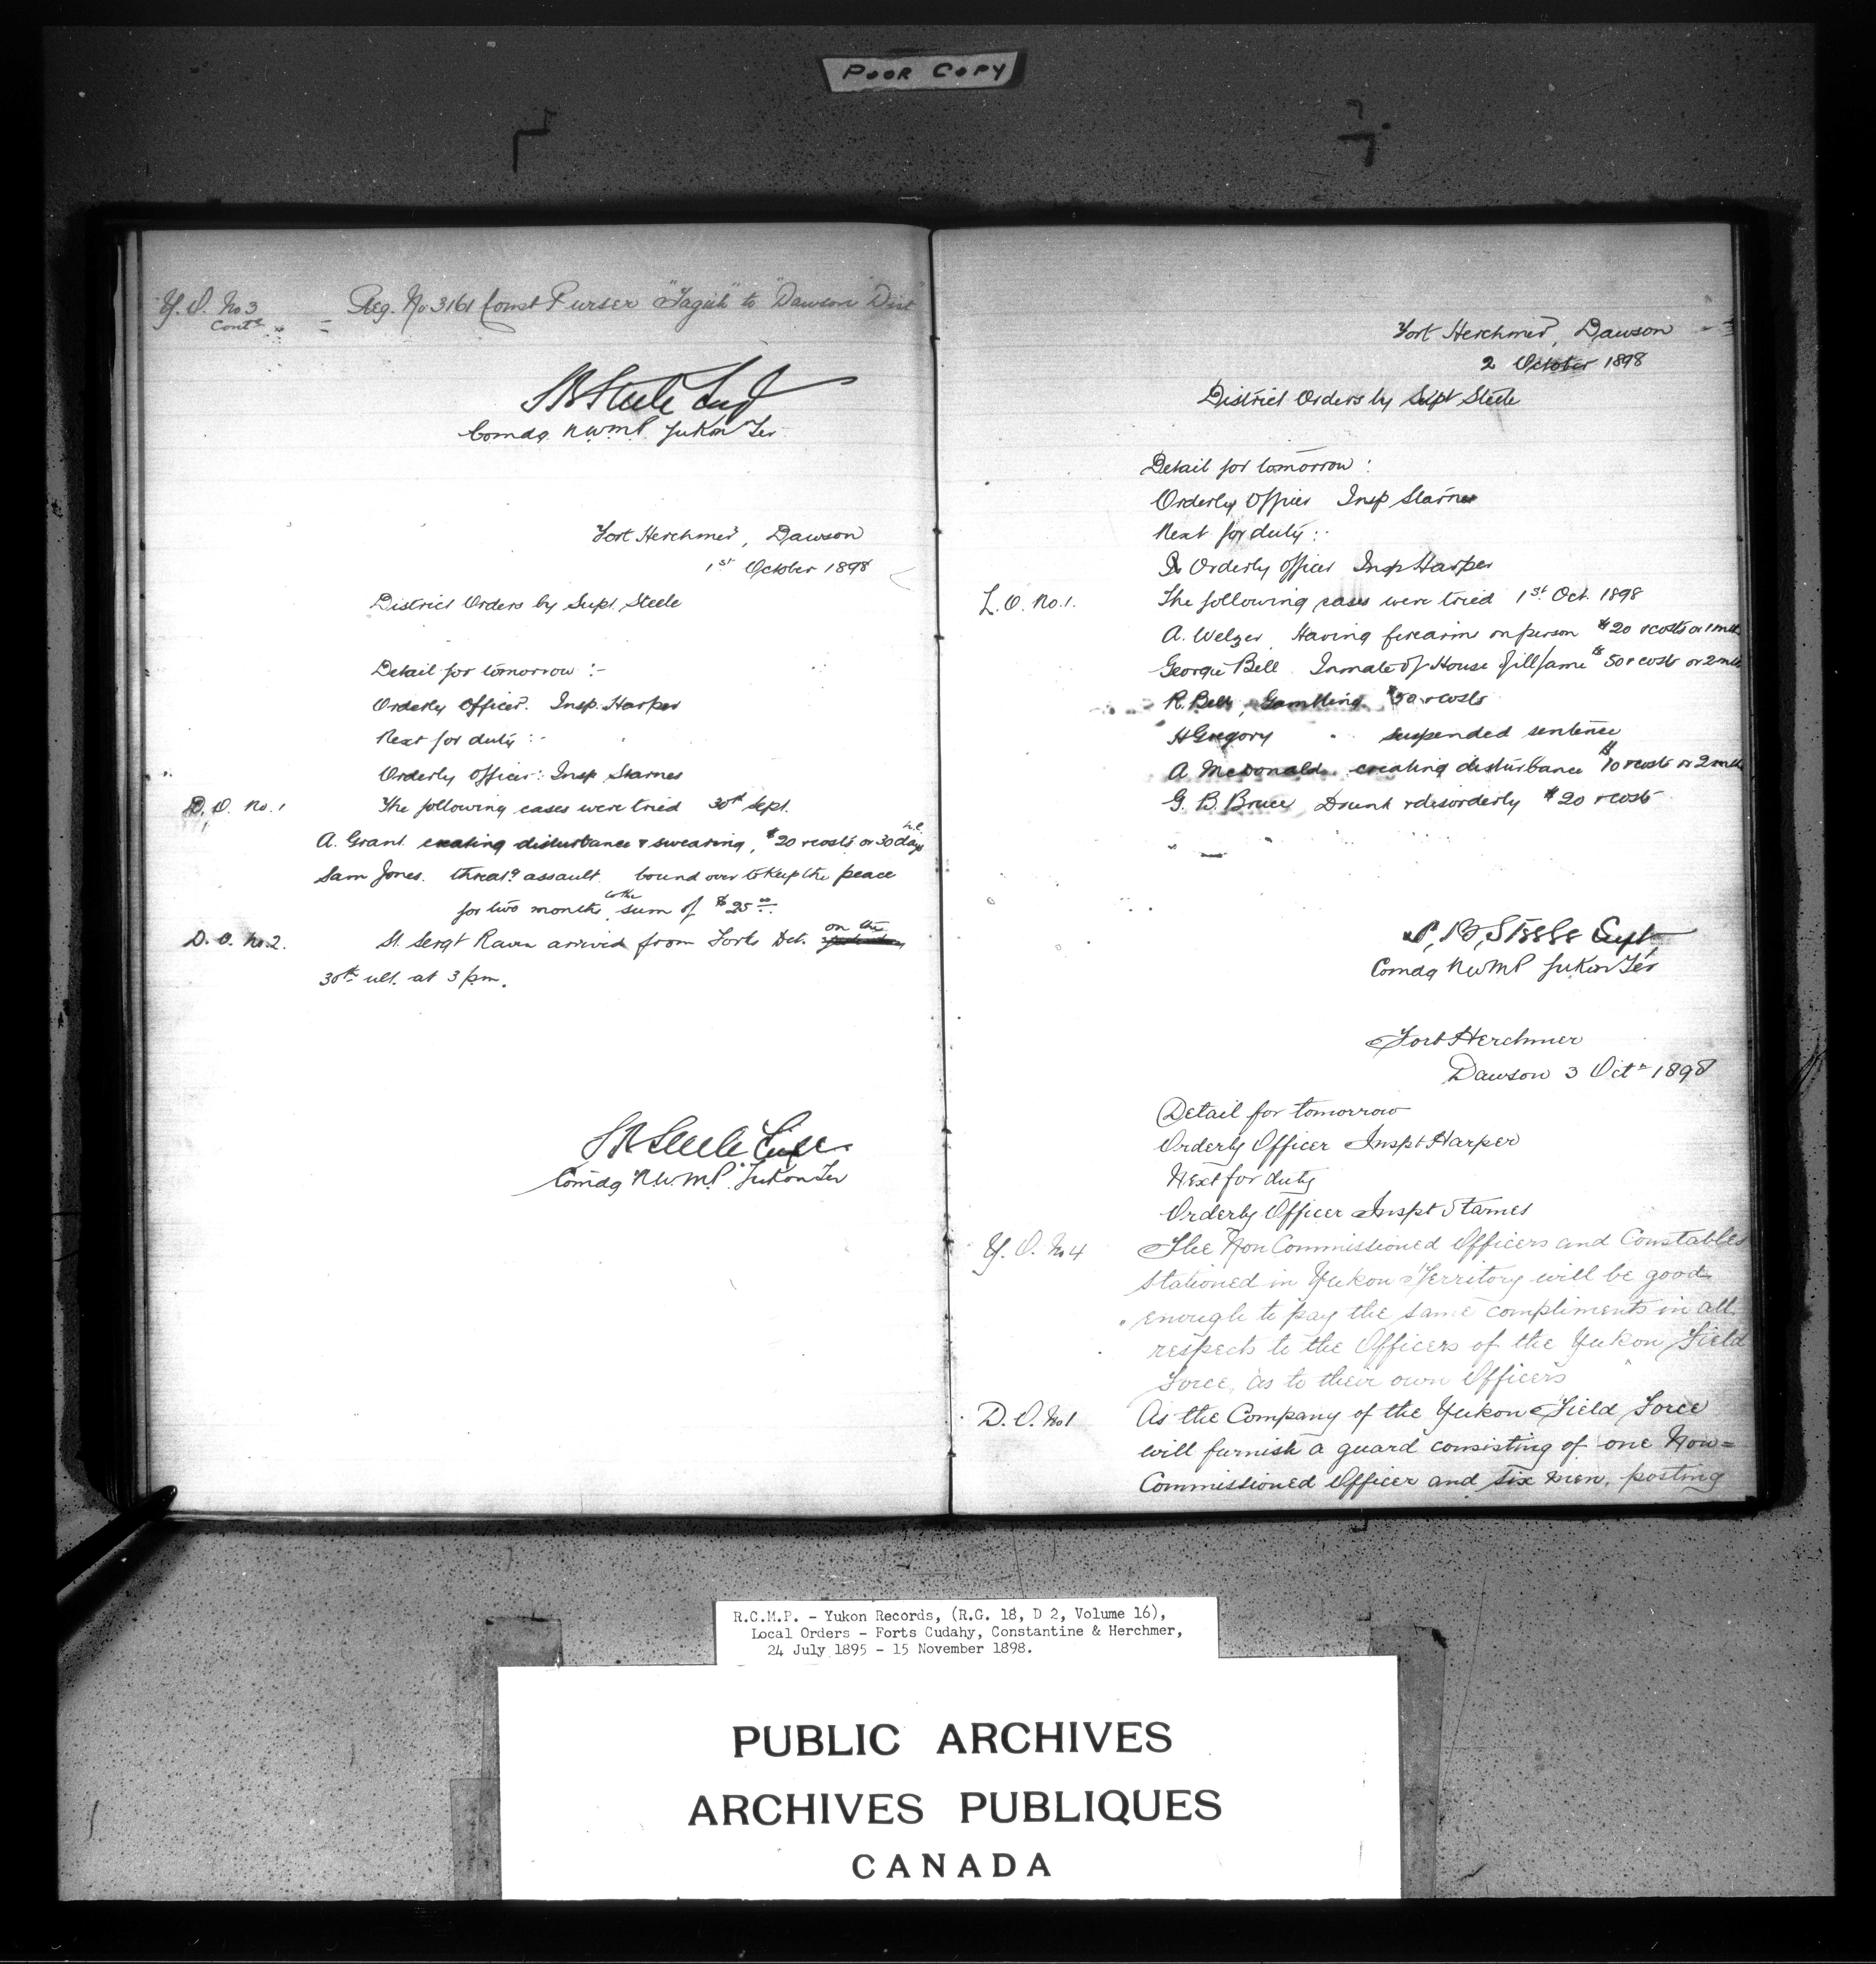 POOR COPY
Y. O. No 3 Reg. No 3161 Const Purser "Tagish" to "Dawson Dist"
Contd
S B Steele Supt
Comdg N.W.M.P. Yukon Ter.
Fort Herchmer, Dawson
1st October 1898
District Orders by Supt. Steele
Detail for tomorrow :-
Orderly Officer. Insp. Harper
Next for duty :-
Orderly Officer: Insp Starnes
D. O. No. 1 The following cases were tried 30th Sept.
A. Grant. creating disturbance & swearing, $20 & costs or 30 days h.l.
Sam Jones. threatg assault. bound over to keep the peace
for two months, in the sum of $25.00
D. O. No. 2. St. Sergt Raven arrived from Forks Det. on the
30th ult. at 3 pm.
S B Steele Supt.
Comdg N.W.M.P. Yukon Ter
Fort Herchmer, Dawson
2 October 1898
District Orders by Supt Steele
Detail for tomorrow :
Orderly Officer Insp Starnes
Next for duty :-
Orderly Officer Insp Harper
L. O. No. 1. The following cases were tried 1st Oct. 1898
A. Welzer, Having firearm on person $20 & costs or 1 mth
Georgie Bell. Inmate of House of ill fame $50 & costs or 2 mth
R. Bell, Gambling. $50 & costs
H Gregory " suspended sentence
A McDonald. creating disturbance $10 & costs or 2 mth
G. B. Bruce Drunk & disorderly $20 & costs
S. B. Steele Supt,
Comdg N W M P Yukon Ter
Fort Herchmer
Dawson 3 Octr 1898
Detail for tomorrow
Orderly Officer Inspt Harper
Next for duty
Orderly Officer Inspt Starnes
Y. O. No 4 The Non Commissioned Officers and Constables
stationed in Yukon Territory will be good
enough to pay the same compliments in all
respects to the Officers of the Yukon Field
Force, as to their own Officers
D. O. No 1 As the Company of the Yukon Field Force
will furnish a guard consisting of one Non=
Commissioned Officer and six men, posting
R.C.M.P. - Yukon Records, (R.G. 18, D 2, Volume 16),
Local Orders - Forts Cudahy, Constantine & Herchmer,
24 July 1895 - 15 November 1898.
PUBLIC ARCHIVES
ARCHIVES PUBLIQUES
CANADA